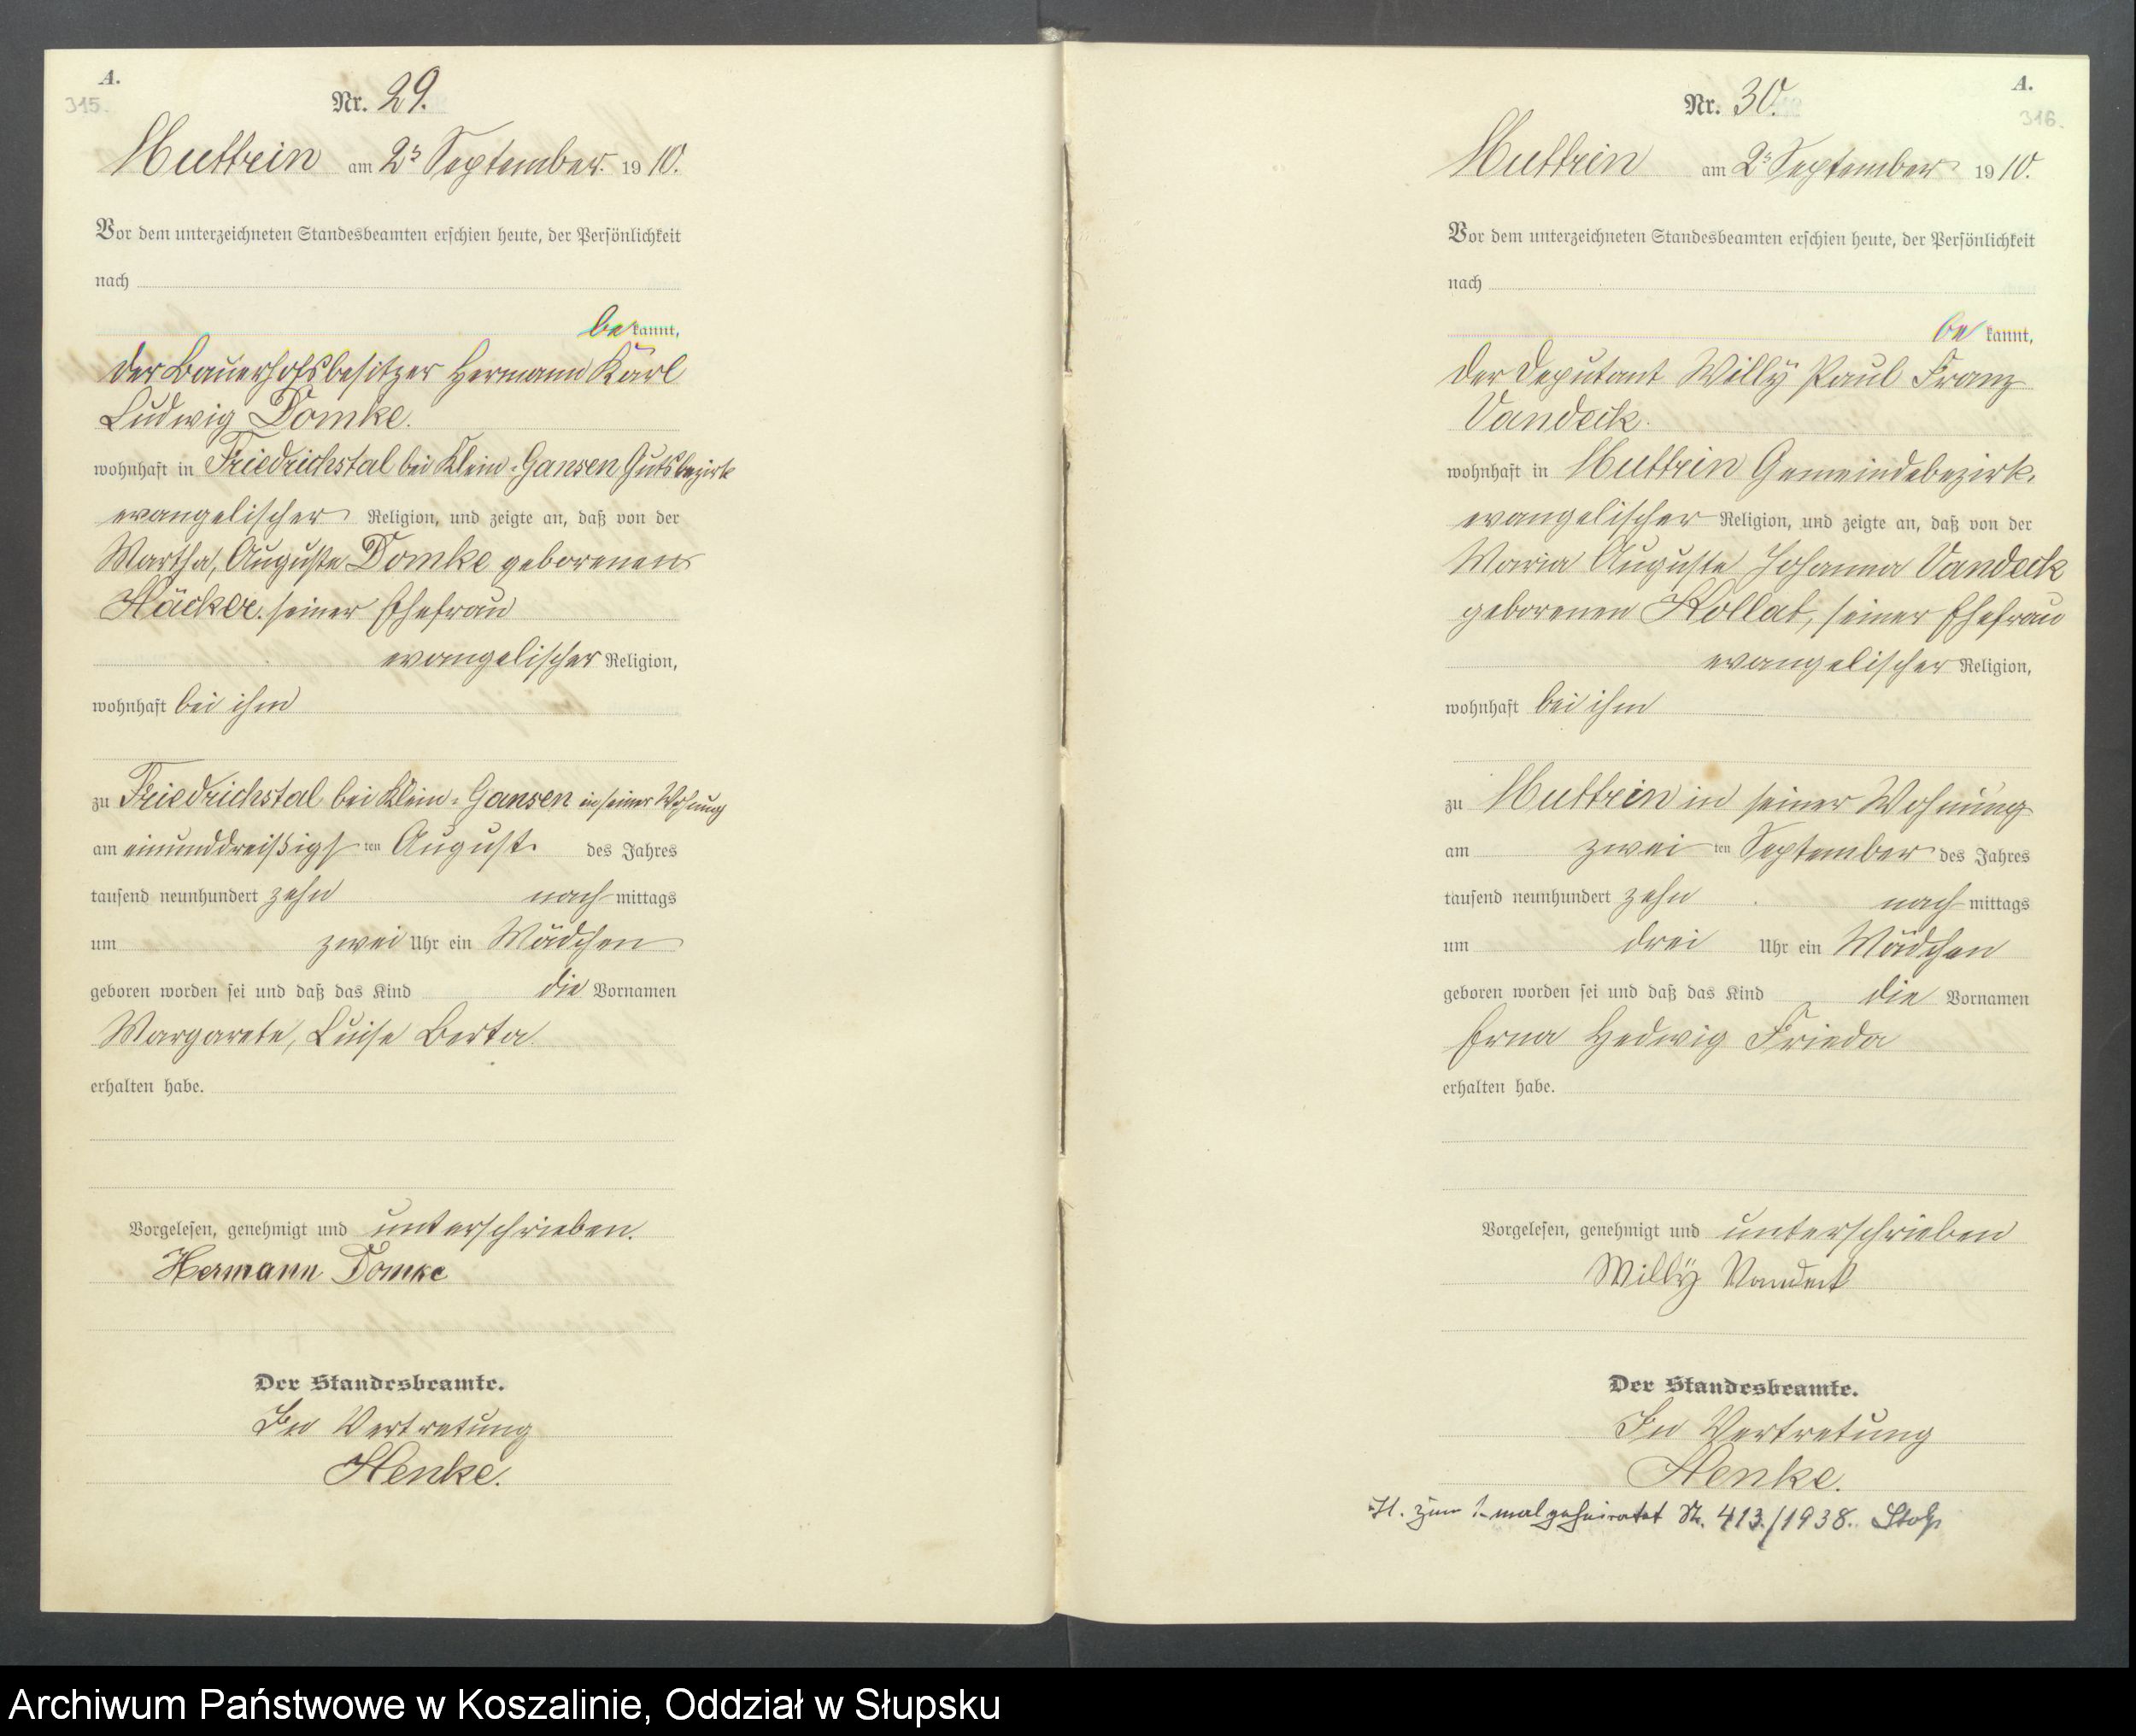 A.
315.
Nr. 29.
Muttrin am 2. September 1910.
Vor dem unterzeichneten Standesbeamten erschien heute, der Persönlichkeit
nach
bekannt,
der Bauerhofsbesitzer Hermann Karl
Ludwig Domke.
wohnhaft in Friedrichstal bei Klein-Gansen Gutsbezirk
evangelischer Religion, und zeigte an, daß von der
Martha, Auguste Domke geborenen
Häcker. seiner Ehefrau
evangelischer Religion,
wohnhaft bei ihm
zu Friedrichstal bei Klein-Gansen in seiner Wohnung
am einunddreißigsten August. des Jahres
tausend neunhundert zehn nachmittags
um zwei Uhr ein Mädchen
geboren worden sei und daß das Kind die Vornamen
Margarete, Luise Berta
erhalten habe.
Vorgelesen, genehmigt und unterschrieben.
Hermann Domke
Der Standesbeamte.
In Vertretung
Henke.
A.
316.
Nr. 30.
Muttrin am 2. September 1910.
Vor dem unterzeichneten Standesbeamten erschien heute, der Persönlichkeit
nach
bekannt,
der Deputant Willy Paul Franz
Vandeck.
wohnhaft in Muttrin Gemeindebezirk.
evangelischer Religion, und zeigte an, daß von der
Maria Auguste Johanna Vandeck
geborenen Kollat, seiner Ehefrau
evangelischer Religion,
wohnhaft bei ihm
zu Muttrin in seiner Wohnung
am zweiten September des Jahres
tausend neunhundert zehn nachmittags
um drei Uhr ein Mädchen
geboren worden sei und daß das Kind die Vornamen
Erna Hedwig Frieda
erhalten habe.
Vorgelesen, genehmigt und unterschrieben
Willy Vandeck
Der Standesbeamte.
In Vertretung
Henke.
H. zum 1. mal geheiratet Nr. 413./1938. Stolp
Archiwum Państwowe w Koszalinie, Oddział w Słupsku